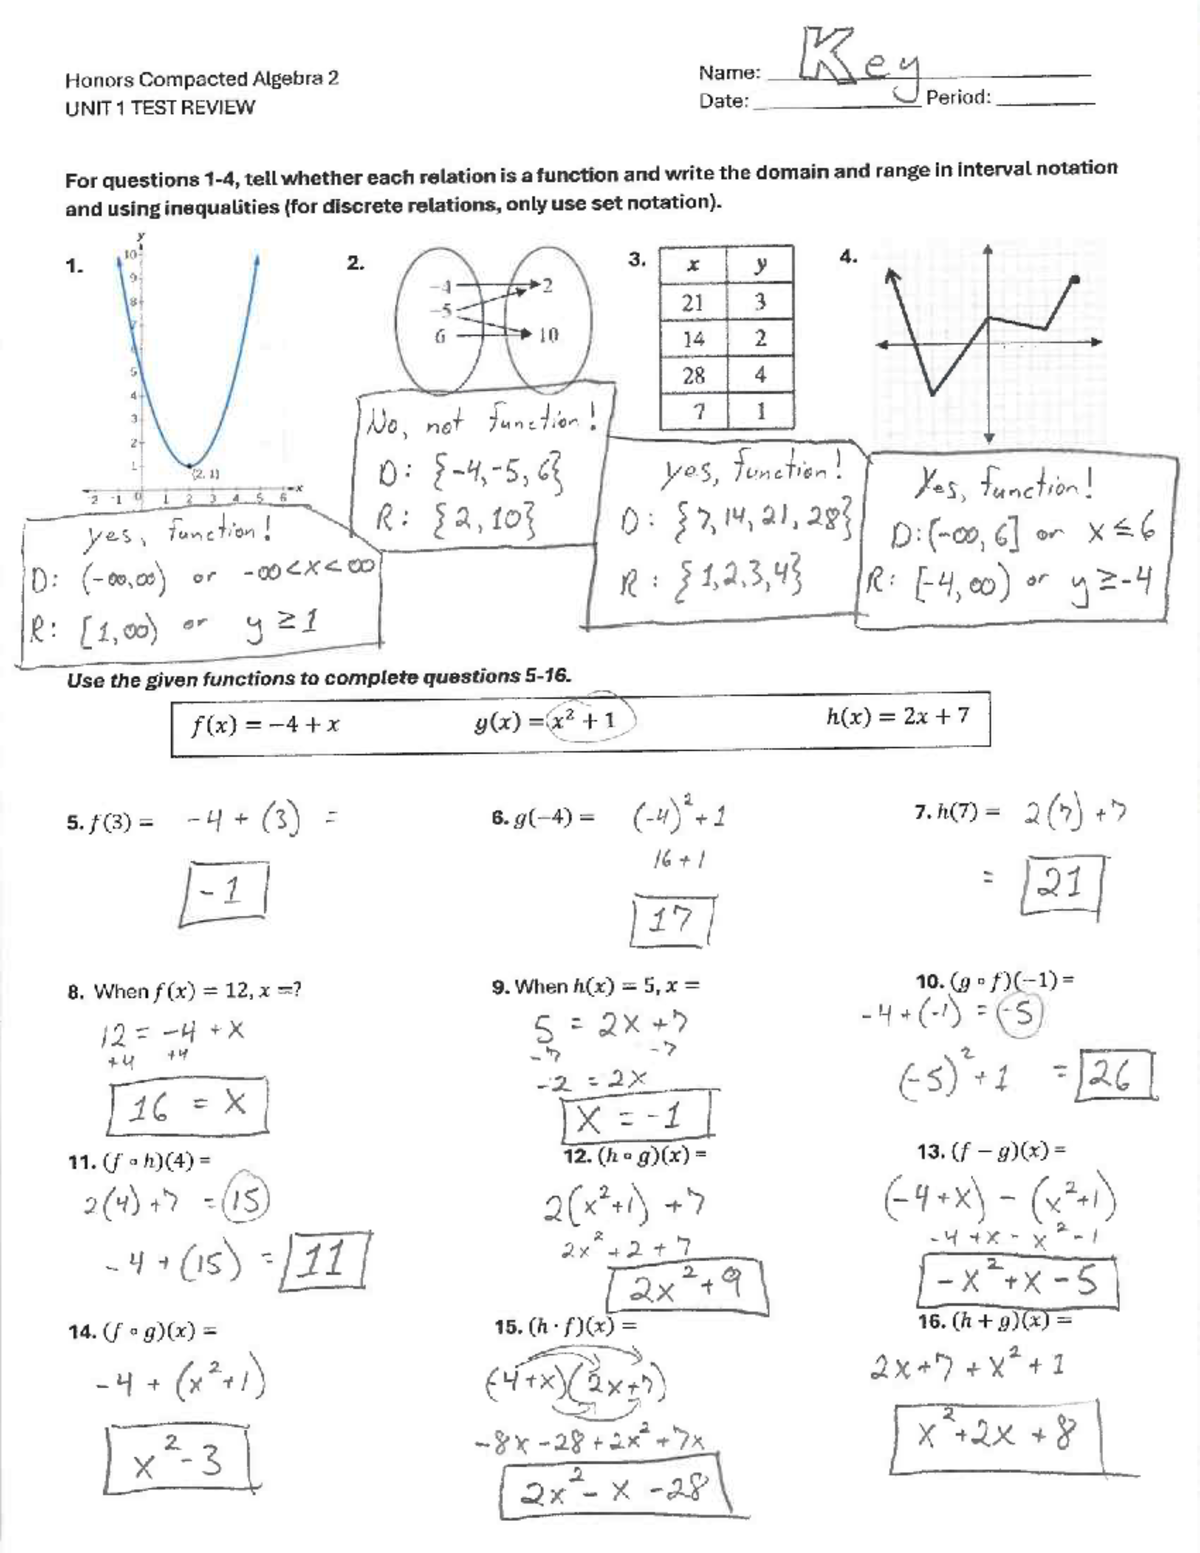 Honors Compacted Algebra 2
UNIT 1 TEST REVIEW
Name: Key
Date: Period:
For questions 1-4, tell whether each relation is a function and write the domain and range in interval notation
and using inequalities (for discrete relations, only use set notation).
1.
y
10
9
8
7
5
4
3
2
1
(2, 1)
-2 -1 0 1 2 3 4 5 6 x
yes, function!
D: (-∞,∞) or -∞<x<∞
R: [1,∞) or y ≥ 1
2.
-4 2
-5
6 10
No, not function!
D: {-4,-5,6}
R: {2,10}
3.
x y
21 3
14 2
28 4
7 1
yes, function!
D: {7,14,21,28}
R: {1,2,3,4}
4.
Yes, function!
D: (-∞, 6] or x ≤ 6
R: [-4,∞) or y ≥ -4
Use the given functions to complete questions 5-16.
f(x) = −4 + x g(x) = x² + 1 h(x) = 2x + 7
5. f(3) = -4 + (3) =
-1
6. g(−4) = (-4)² + 1
16 + 1
17
7. h(7) = 2(7) + 7
= 21
8. When f(x) = 12, x =?
12 = -4 + x
+4 +4
16 = x
9. When h(x) = 5, x =
5 = 2x + 7
-7 -7
-2 = 2x
x = -1
10. (g ∘ f)(−1) =
-4 + (-1) = -5
(-5)² + 1 = 26
11. (f ∘ h)(4) =
2(4) + 7 = 15
-4 + (15) = 11
12. (h ∘ g)(x) =
2(x²+1) + 7
2x² + 2 + 7
2x² + 9
13. (f − g)(x) =
(-4+x) - (x²+1)
-4 + x - x² - 1
-x² + x - 5
14. (f ∘ g)(x) =
-4 + (x²+1)
x² - 3
15. (h · f)(x) =
(-4+x)(2x+7)
-8x - 28 + 2x² + 7x
2x² - x - 28
16. (h + g)(x) =
2x + 7 + x² + 1
x² + 2x + 8